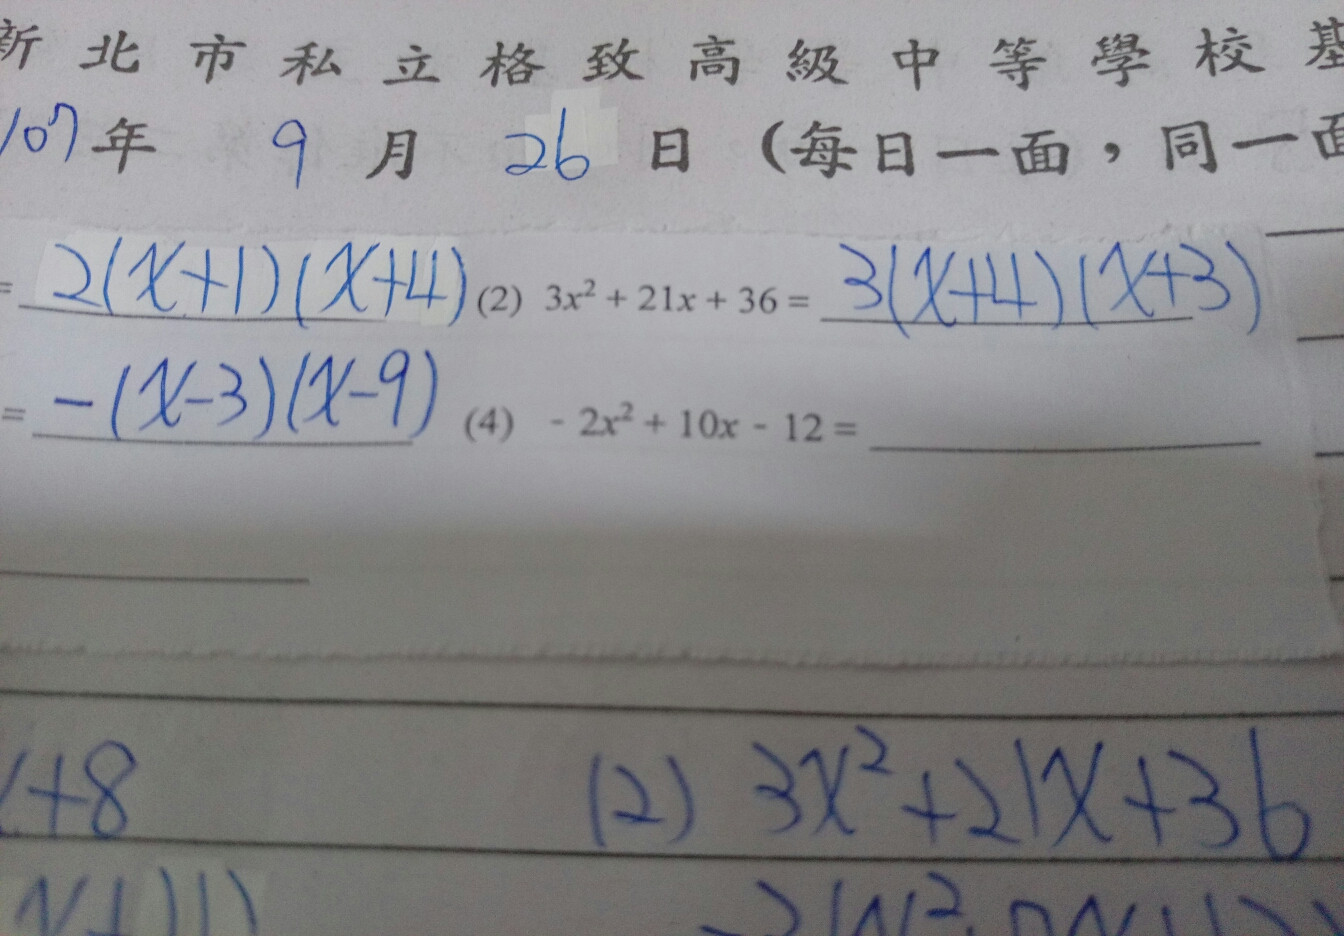 新北市私立格致高級中等學校基
107年 9月 26日(每日一面，同一面
= 2(x+1)(x+4) (2) 3x² + 21x + 36 = 3(x+4)(x+3)
= -(x-3)(x-9) (4) - 2x² + 10x - 12 =
+8 (2) 3x²+21x+36